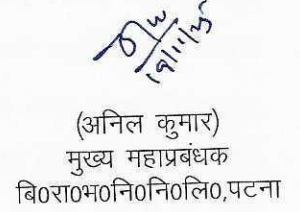 19/11/25
(अनिल कुमार)
मुख्य महाप्रबंधक
बि0रा0भ0नि0नि0लि0,पटना